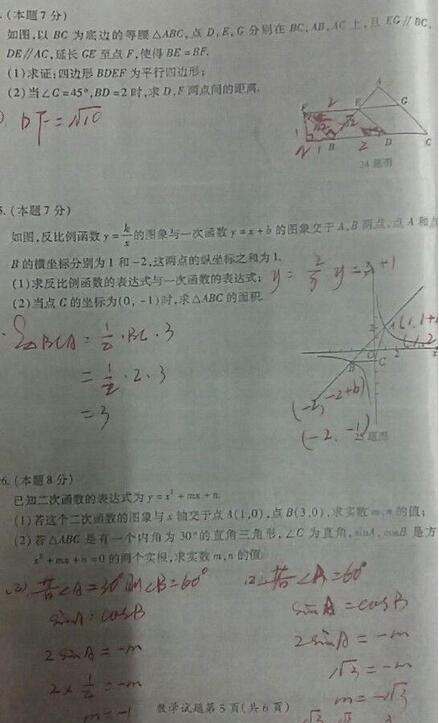 (本题7分)
如图,以BC为底边的等腰△ABC,点D,E,G分别在BC,AB,AC上,且EG∥BC,
DE∥AC,延长GE至点F,使得BE=BF.
(1)求证:四边形BDEF为平行四边形;
(2)当∠C=45°,BD=2时,求D,F两点间的距离.
DF=√10
A
F 2 E G
1 B 2 D C
24题图
5.(本题7分)
如图,反比例函数y=k/x的图象与一次函数y=x+b的图象交于A,B两点,点A和点
B的横坐标分别为1和-2,这两点的纵坐标之和为1.
(1)求反比例函数的表达式与一次函数的表达式; y=x+1
(2)当点C的坐标为(0,-1)时,求△ABC的面积.
S△BCA=1/2·BC·3
=1/2·2·3
=3
B C
(-2,-2+b)
(-2,-1)
题图
6.(本题8分)
已知二次函数的表达式为y=x²+mx+n.
(1)若这个二次函数的图象与x轴交于点A(1,0),点B(3,0),求实数m,n的值;
(2)若△ABC是有一个内角为30°的直角三角形,∠C为直角,sinA,cosB是方
x²+mx+n=0的两个实根,求实数m,n的值.
若∠A=30°则∠B=60°
sinA=cosB
2sinA=-m
2×1/2=-m
m=-1
若∠A=60°
sinA=cosB
2sinA=-m
√3=-m
m=-√3
数学试题第5页(共6页)